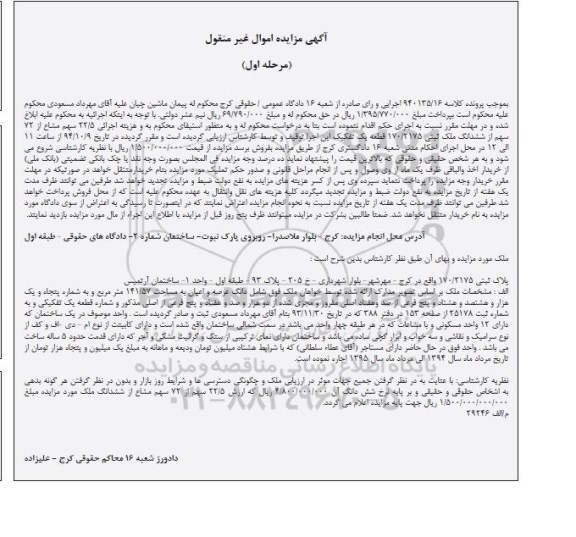 آگهی مزایده اموال غیر منقول
(مرحله اول)
بموجب پرونده کلاسه ۹۴۰۱۳۵/۱۶ اجرایی و رای صادره از شعبه ۱۶ دادگاه عمومی / حقوقی کرج محکوم له پیمان ماشین چیان علیه آقای مهرداد مسعودی محکوم
علیه محکوم است بپرداخت مبلغ ۱/۳۹۵/۷۷۰/۰۰۰ ریال در حق محکوم له و مبلغ ۶۹/۷۹۰/۰۰۰ ریال نیم عشر دولتی. با توجه به اینکه اجرائیه به محکوم علیه ابلاغ
شده و در مهلت مقرر نسبت به اجرای حکم اقدام ننموده است بنا به درخواست محکوم له و به منظور استیفای محکوم به و هزینه اجرائی ۲۲/۵ سهم مشاع از ۷۲
سهم از ششدانگ ملک ثبتی ۱۷۰/۲۱۷۵ قطعه یک تفکیک این اجرا توقیف و توسط کارشناس ارزیابی گردیده است و مقرر گردیده در تاریخ ۹۴/۱۰/۹ از ساعت ۱۱
الی ۱۲ در محل اجرای احکام مدنی شعبه ۱۶ دادگستری کرج از طریق مزایده بفروش برسد مزایده از قیمت ۱/۵۰۰/۰۰۰/۰۰۰ ریال با نظریه کارشناسی شروع می
شود و به هر شخص حقیقی و حقوقی که بالاترین قیمت را پیشنهاد نماید ده درصد وجه مزایده فی المجلس بصورت وجه نقد یا چک بانکی تضمینی (بانک ملی)
از خریدار اخذ والباقی ظرف یک ماه از وی وصول و پس از انجام مراحل قانونی و صدور حکم تملیک مورد مزایده بنام خریدار منتقل خواهد شد در صورتیکه در مهلت
مقرر خریدار وجه مزایده را پرداخت ننماید سپرده وی پس از کسر هزینه های مزایده به نفع دولت ضبط و مزایده تجدید خواهد شد طرفین می توانند ظرف مدت
یک هفته از تاریخ مزایده به نفع دولت ضبط و مزایده تجدید میگردد کلیه هزینه های نقل وانتقال به عهده محکوم علیه است که از محل فروش پرداخت خواهد
شد طرفین می توانند ظرف مدت یک هفته از تاریخ مزایده نسبت به نحوه انجام مزایده اعتراض نمایند که در اینصورت تا رسیدگی به اعتراض از سوی دادگاه مورد
مزایده به نام خریدار منتقل نخواهد شد. ضمنا طالبین بشرکت در مزایده میتوانند ظرف پنج روز قبل از مزایده با اطلاع این اجراء از مال مورد مزایده بازدید نمایند.
آدرس محل انجام مزایده: کرج - بلوار ملاصدرا- روبروی پارک نبوت- ساختمان شماره ۲- دادگاه های حقوقی - طبقه اول
ملک مورد مزایده و بهای آن طبق نظر کارشناس بدین شرح است :
پلاک ثبتی ۱۷۰/۲۱۷۵ واقع در کرج - مهرشهر- بلوار شهرداری - خ ۲۰۵ - پلاک ۹۳ - طبقه اول - واحد ۱- ساختمان آرتمیس
الف : مشخصات ملک بر اساس تصویر مدارک ارائه شده توسط خواهان ملک فوق شامل دانگ عرصه و اعیان به مساحت ۱۴۱/۵۷ متر مربع و به شماره پنجاه و یک
هزار و هشتصد و هشتاد و پنج فرعی از صد وهفتاد اصلی مفروز و مجزی شده از دو هزار و صد و هفتاد و پنج فرعی از اصلی مذکور و شماره قطعه یک تفکیکی و به
شماره ثبت ۲۵۱۷۸ از صفحه ۱۵۳ در دفتر ۳۸۸ که در تاریخ ۹۳/۱۱/۳۰ بنام آقای مهرداد مسعودی ثبت و صادر گردیده است . واحد موصوف در یک ساختمان که
دارای ۱۲ واحد مسکونی و با مشاعات که در هر طبقه چهار واحد می باشد در سمت شمالی ساختمان واقع شده است و دارای کابینت از نوع ام - دی -اف و کف از
نوع سرامیک و نقاشی و سه خواب و ابزار گچی ساده می باشد و ساختمان دارای نمای ترکیبی از سنگ و گرانیت مشکی و آجر که دارای قدمت حدود ۵ ساله ساخت
می باشد . واحد فوق در حال حاضر دارای مستاجر (آقای عطاء سلطانی) که با شرایط هشتاد میلیون تومان ودیعه و ماهانه به مبلغ یک میلیون و پنجاه هزار تومان از
تاریخ مرداد ماه سال ۱۳۹۴ الی مرداد ماه سال ۱۳۹۵ اجاره نموده است.
نظریه کارشناسی: با عنایت به در نظر گرفتن جمیع جهات موثر در ارزیابی ملک و چگونگی دسترسی ها و شرایط روز بازار و بدون در نظر گرفتن هر گونه بدهی
به اشخاص حقوقی و حقیقی و بر پایه نرخ شش دانگ آن ۴/۸۰۰/۰۰۰/۰۰۰ ریال که ارزش ۲۲/۵ سهم از ۷۲ سهم مشاع از ششدانگ ملک مورد مزایده مبلغ
۱/۵۰۰/۰۰۰/۰۰۰ ریال جهت پایه مزایده اعلام می گردد.
م/الف ۲۹۲۴۶
پایگاه اطلاع رسانی مناقصه و مزایده
دادورز شعبه ۱۶ محاکم حقوقی کرج - علیزاده